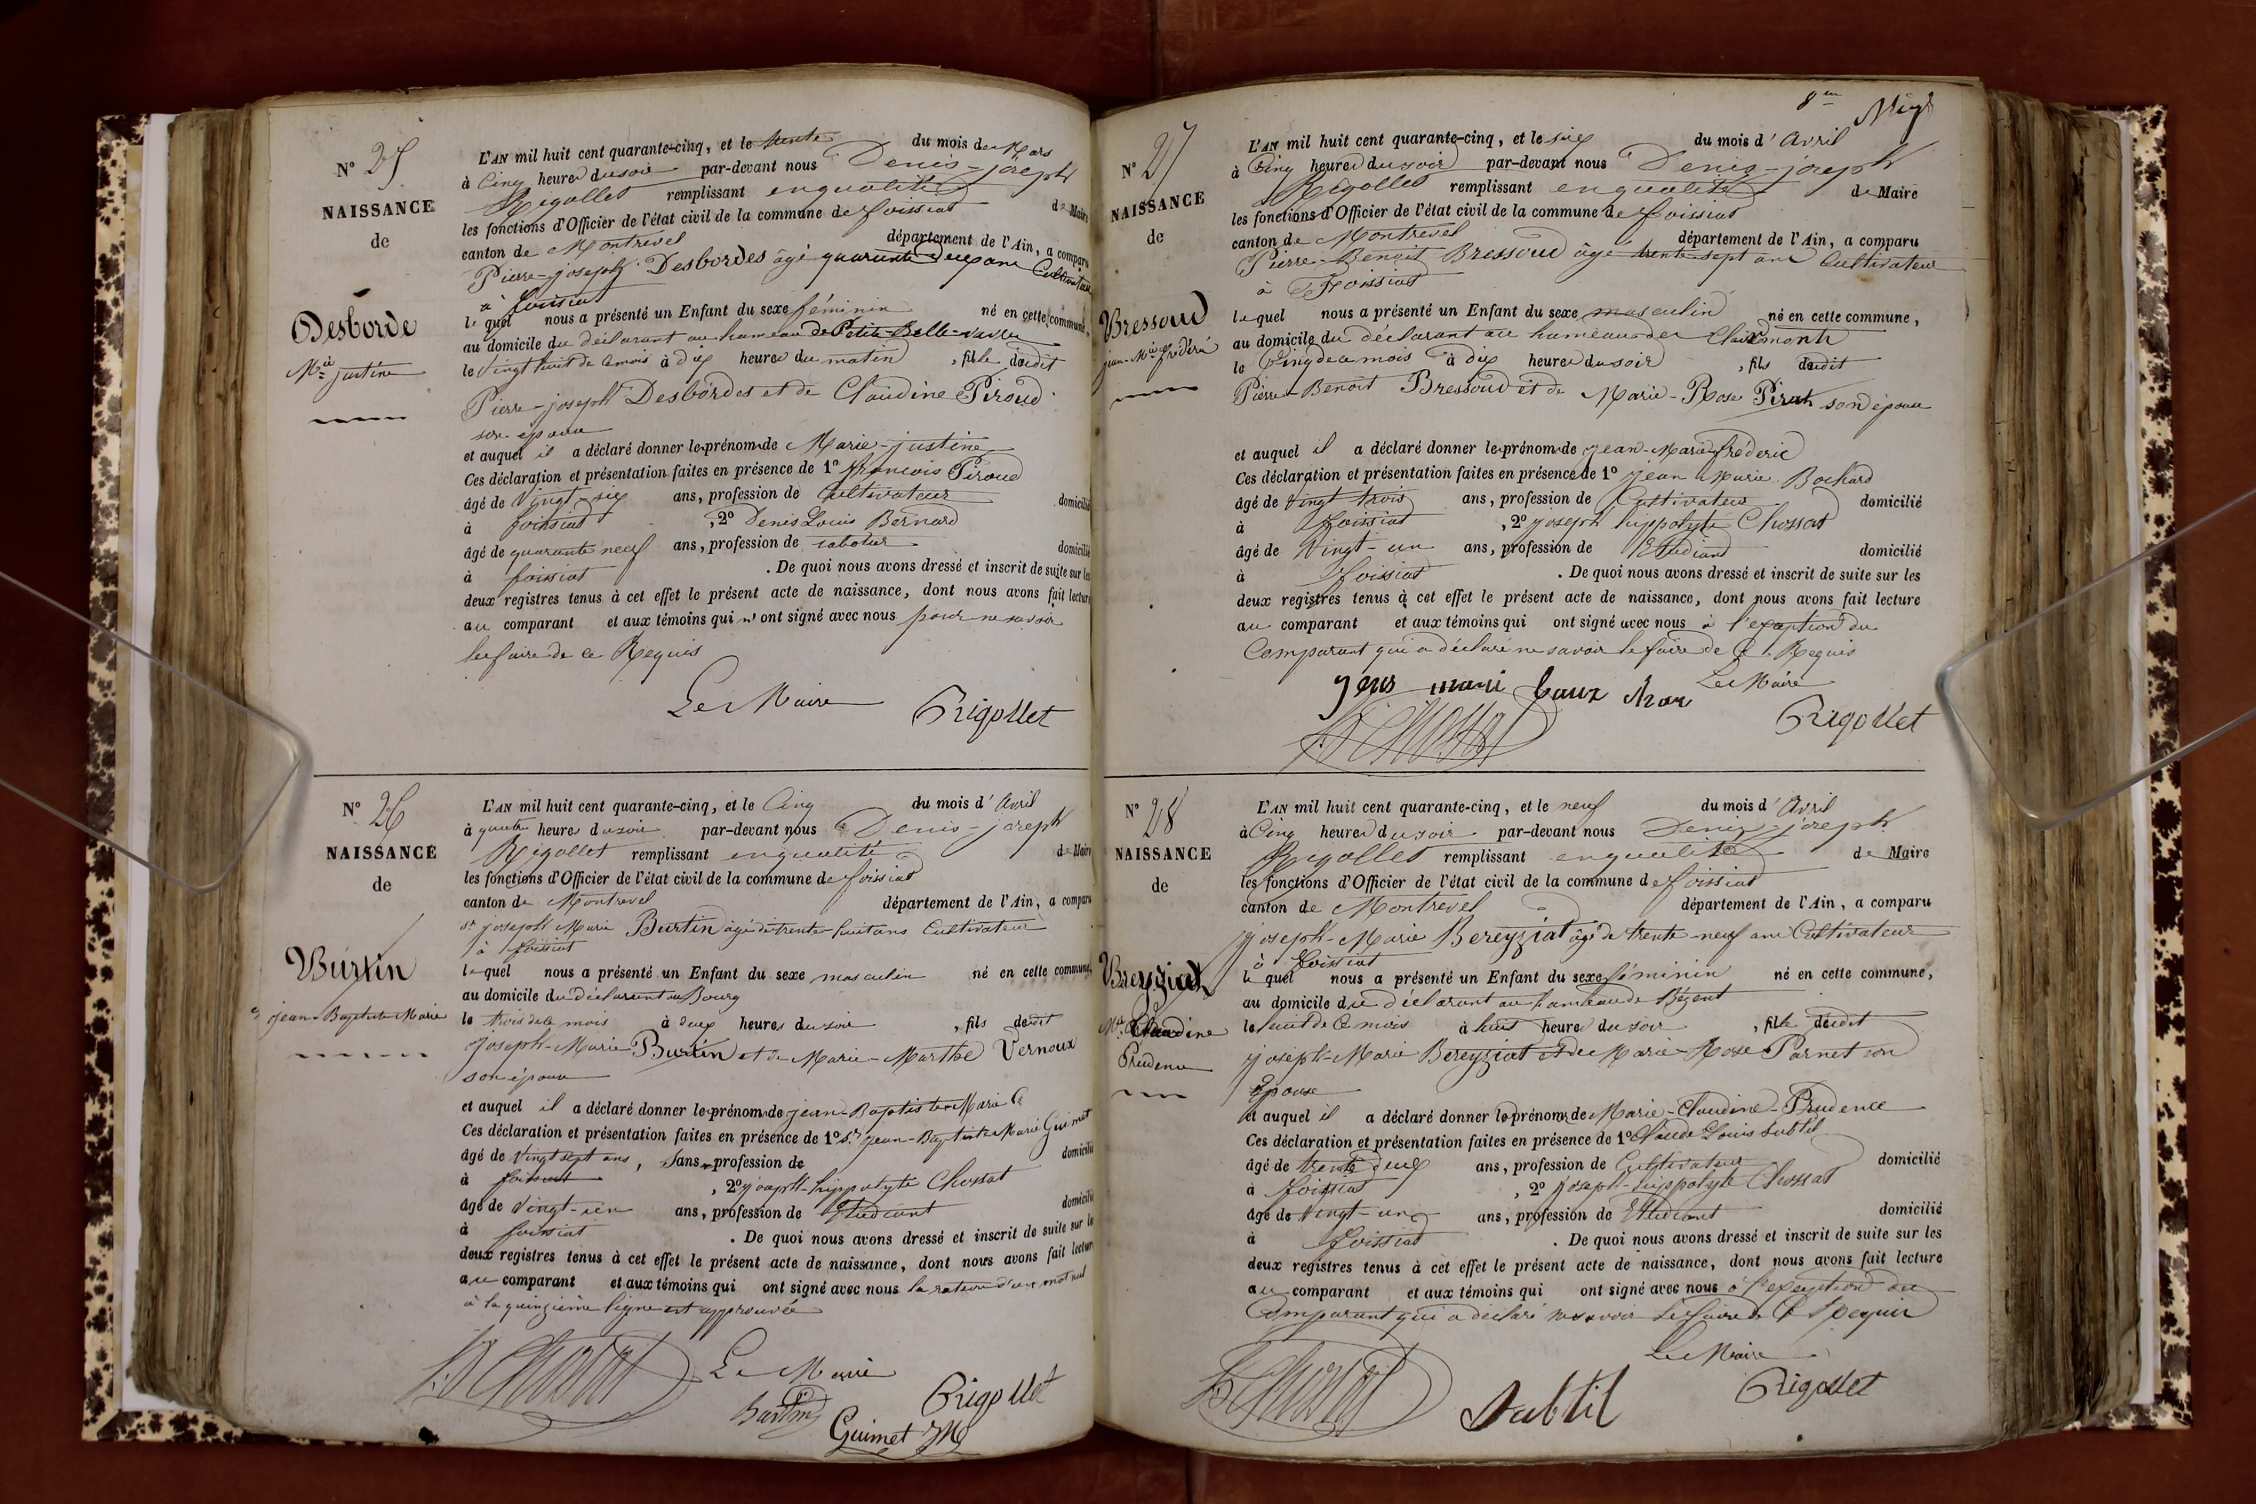 N° 25
NAISSANCE
de
Desborde
Mie justine
L'AN mil huit cent quarante-cinq, et le trente du mois de Mars
à Cinq heures du soir par-devant nous Denis-joseph
Rigollet remplissant en qualité de Maire
les fonctions d'Officier de l'état civil de la commune de foissiat
canton de Montrevel département de l'Ain, a comparu
Pierre-joseph Desbordes âgé quarante deux ans Cultivateur
à foissiat
lequel nous a présenté un Enfant du sexe féminin né en cette commune,
au domicile du déclarant au hameau de Petite-Belle-vavre
le vingt huit de ce mois à dix heures du matin, fille dudit
Pierre-joseph Desbordes et de Claudine Piroud
son épouse
et auquel il a déclaré donner le prénom de Marie-justine
Ces déclaration et présentation faites en présence de 1° françois Piroud
âgé de vingt-six ans, profession de Cultivateur domicilié
à foissiat, 2° Denis Louis Bernard
âgé de quarante neuf ans, profession de sabotier domicilié
à foissiat. De quoi nous avons dressé et inscrit de suite sur les
deux registres tenus à cet effet le présent acte de naissance, dont nous avons fait lecture
au comparant et aux témoins qui n'ont signé avec nous pour ne savoir
le faire de ce Requis
Le Maire Rigollet
N° 26
NAISSANCE
de
Burtin
jean-Baptiste-Marie
L'AN mil huit cent quarante-cinq, et le Cinq du mois d'Avril
à quatre heures du soir par-devant nous Denis-joseph
Rigollet remplissant en qualité de Maire
les fonctions d'Officier de l'état civil de la commune de foissiat
canton de Montrevel département de l'Ain, a comparu
sr joseph Marie Burtin âgé de trente-huit ans Cultivateur
à foissiat
lequel nous a présenté un Enfant du sexe masculin né en cette commune,
au domicile du déclarant au Bourg
le trois de ce mois à deux heures du soir, fils dudit
joseph-Marie Burtin et de Marie-Marthe Vernoux
son épouse
et auquel il a déclaré donner le prénom de jean-Baptiste-Marie
Ces déclaration et présentation faites en présence de 1° sr jean-Baptiste Marie Guimet
âgé de vingt sept ans, sans profession de domicilié
à foissiat, 2° joseph-hippolyte Chossat
âgé de vingt-un ans, profession de Etudiant domicilié
à foissiat. De quoi nous avons dressé et inscrit de suite sur les
deux registres tenus à cet effet le présent acte de naissance, dont nous avons fait lecture
au comparant et aux témoins qui ont signé avec nous la rature d'un mot nul
à la quinzième ligne est approuvée
Le Maire
Burtin Rigollet
Guimet JM
8me
N° 27
NAISSANCE
de
Bressoud
jean-Mie frédéric
L'AN mil huit cent quarante-cinq, et le six du mois d'Avril
à Cinq heures du soir par-devant nous Denis-joseph
Rigollet remplissant en qualité de Maire
les fonctions d'Officier de l'état civil de la commune de foissiat
canton de Montrevel département de l'Ain, a comparu
Pierre-Benoit Bressoud âgé trente-sept ans Cultivateur
à Foissiat
lequel nous a présenté un Enfant du sexe masculin né en cette commune,
au domicile du déclarant au hameau de Clairmonts
le Cinq de ce mois à dix heures du soir, fils dudit
Pierre-Benoit Bressoud et de Marie-Rose Pirat son épouse
et auquel il a déclaré donner le prénom de jean-Marie-frédéric
Ces déclaration et présentation faites en présence de 1° jean Marie Bochard
âgé de vingt trois ans, profession de Cultivateur domicilié
à foissiat, 2° joseph hippolyte Chossat
âgé de vingt-un ans, profession de Etudiant domicilié
à foissiat. De quoi nous avons dressé et inscrit de suite sur les
deux registres tenus à cet effet le présent acte de naissance, dont nous avons fait lecture
au comparant et aux témoins qui ont signé avec nous à l'exeption du
Comparant qui a déclaré ne savoir le faire de Ce Requis
Le Maire
Rigollet
N° 28
NAISSANCE
de
Breyziat
Mie Claudine
Prudence
L'AN mil huit cent quarante-cinq, et le neuf du mois d'Avril
à Cinq heures du soir par-devant nous Denis-joseph
Rigollet remplissant en qualité de Maire
les fonctions d'Officier de l'état civil de la commune de foissiat
canton de Montrevel département de l'Ain, a comparu
joseph-Marie Bereyziat âgé de trente-neuf ans Cultivateur
à foissiat
lequel nous a présenté un Enfant du sexe féminin né en cette commune,
au domicile du déclarant au hameau de Bézent
le huit de Ce mois à huit heures du soir, fille dudit
joseph-Marie Bereyziat et de Marie-Rose Parnet son
Epouse
et auquel il a déclaré donner le prénom de Marie-Claudine-Prudence
Ces déclaration et présentation faites en présence de 1° Claude Louis Subtil
âgé de trente deux ans, profession de Cultivateur domicilié
à foissiat, 2° joseph-hippolyte Chossat
âgé de vingt-un ans, profession de Etudiant domicilié
à foissiat. De quoi nous avons dressé et inscrit de suite sur les
deux registres tenus à cet effet le présent acte de naissance, dont nous avons fait lecture
au comparant et aux témoins qui ont signé avec nous à l'exeption du
Comparant qui a déclaré ne savoir le faire de Ce Requis
Le Maire
Subtil Rigollet